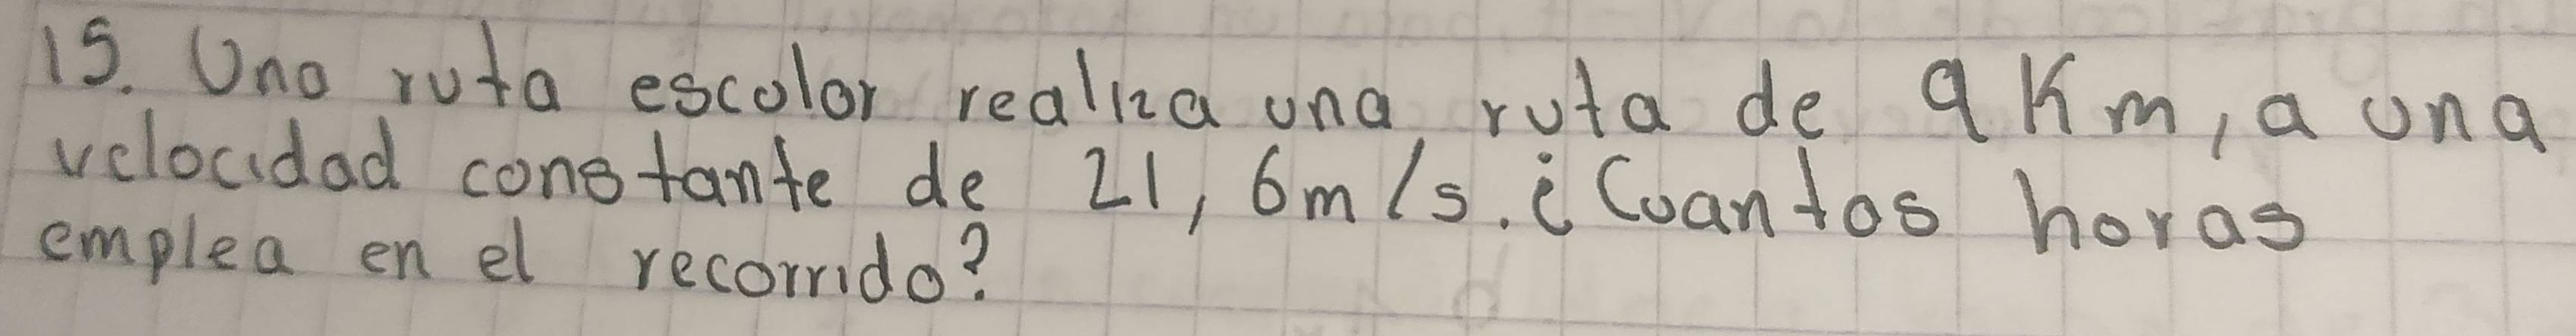 15. Una ruta escolar realiza una ruta de 9 Km, a una
velocidad constante de 21, 6m/s. ¿Cuantas horas
emplea en el recorrido?